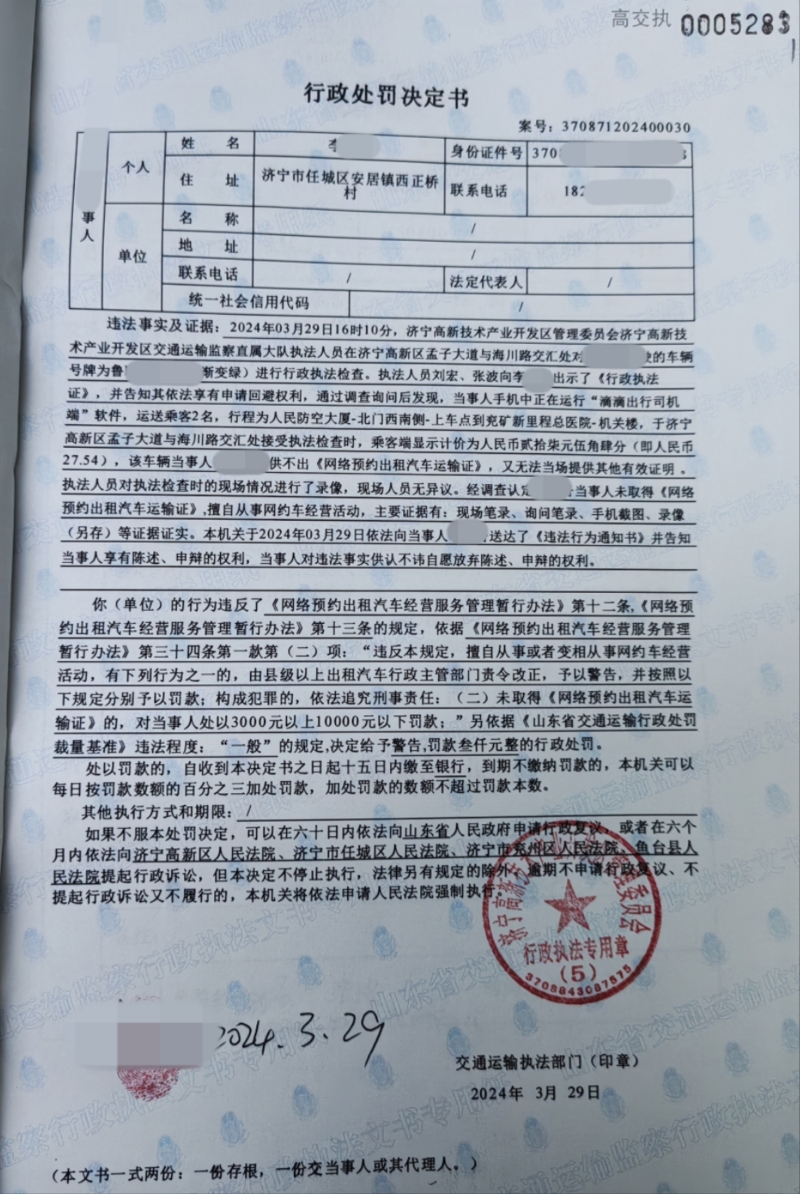 高交执 0005283
行政处罚决定书
案号：370871202400030
事人
个人
姓 名
李
身份证件号
370
住 址
济宁市任城区安居镇西正桥村
联系电话
182
单位
名 称
/
地 址
/
联系电话
/
法定代表人
/
统一社会信用代码
/
违法事实及证据：2024年03月29日16时10分，济宁高新技术产业开发区管理委员会济宁高新技
术产业开发区交通运输监察直属大队执法人员在济宁高新区孟子大道与海川路交汇处对 驶的车辆
号牌为鲁 渐变绿）进行行政执法检查。执法人员刘宏、张波向李 出示了《行政执法
证》，并告知其依法享有申请回避权利，通过调查询问后发现，当事人手机中正在运行“滴滴出行司机
端”软件，运送乘客2名，行程为人民防空大厦-北门西南侧-上车点到兖矿新里程总医院-机关楼，于济
宁高新区孟子大道与海川路交汇处接受执法检查时，乘客端显示计价为人民币贰拾柒元伍角肆分（即人民币
27.54），该车辆当事人 供不出《网络预约出租汽车运输证》，又无法当场提供其他有效证明。
执法人员对执法检查时的现场情况进行了录像，现场人员无异议。经调查认定 当事人未取得《网络
预约出租汽车运输证》,擅自从事网约车经营活动，主要证据有：现场笔录、询问笔录、手机截图、录像
（另存）等证据证实。本机关于2024年03月29日依法向当事人 送达了《违法行为通知书》并告知
当事人享有陈述、申辩的权利，当事人对违法事实供认不讳自愿放弃陈述、申辩的权利。
你（单位）的行为违反了《网络预约出租汽车经营服务管理暂行办法》第十二条,《网络预
约出租汽车经营服务管理暂行办法》第十三条的规定，依据《网络预约出租汽车经营服务管理
暂行办法》第三十四条第一款第（二）项：“违反本规定，擅自从事或者变相从事网约车经营
活动，有下列行为之一的，由县级以上出租汽车行政主管部门责令改正，予以警告，并按照以
下规定分别予以罚款；构成犯罪的，依法追究刑事责任：（二）未取得《网络预约出租汽车运
输证》的，对当事人处以3000元以上10000元以下罚款；”另依据《山东省交通运输行政处罚
裁量基准》违法程度：“一般”的规定,决定给予警告,罚款叁仟元整的行政处罚。
处以罚款的，自收到本决定书之日起十五日内缴至银行，到期不缴纳罚款的，本机关可以
每日按罚款数额的百分之三加处罚款，加处罚款的数额不超过罚款本数。
其他执行方式和期限：/
如果不服本处罚决定，可以在六十日内依法向山东省人民政府申请行政复议，或者在六个
月内依法向济宁高新区人民法院、济宁市任城区人民法院、济宁市兖州区人民法院、鱼台县人
民法院提起行政诉讼，但本决定不停止执行，法律另有规定的除外。逾期不申请行政复议、不
提起行政诉讼又不履行的，本机关将依法申请人民法院强制执行。
行政执法专用章
（5）
3708843087575
2024.3.29
交通运输执法部门（印章）
2024年 3月 29日
（本文书一式两份：一份存根，一份交当事人或其代理人。）